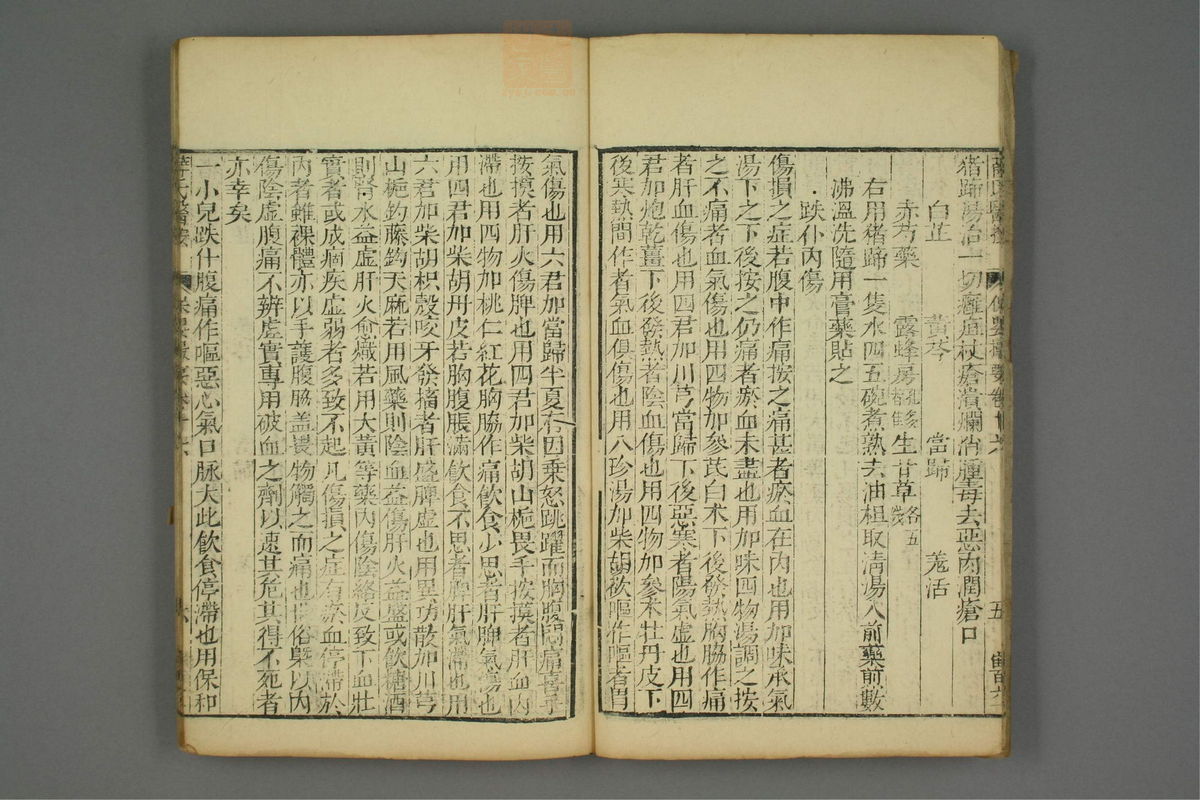 猪蹄湯治一切癰疽杖瘡潰爛消腫毒去惡肉潤瘡口
白芷　黃芩　當歸　羗活
赤芍藥　露蜂房　生甘草各五
右用猪蹄一隻水四五碗煮熟去油柤取清湯入前藥煎數
沸溫洗隨用膏藥貼之
跌仆內傷
傷損之症若腹中作痛按之痛甚者瘀血在內也用加味承氣
湯下之下後按之仍痛者瘀血未盡也用加味四物湯調之按
之不痛者血氣傷也用四物加參芪白朮下後發熱胸脇作痛
者肝血傷也用四君加川芎當歸下後惡寒者陽氣虛也用四
君加炮乾薑下後發熱者陰血傷也用四物加參朮牡丹皮下
後寒熱間作者氣血俱傷也用八珍湯加柴胡欲嘔作嘔者胃
氣傷也用六君加當歸半夏有因乗怒跳躍而胸腹悶痛喜手
按摸者肝火傷脾也用四君加柴胡山梔畏手按摸者肝血內
滯也用四物加桃仁紅花胸脇作痛飲食少思者肝脾氣傷也
用四君加柴胡丹皮若胸腹脹滿飲食不思者脾肝氣滯也用
六君加柴胡枳殼咬牙發搐者肝盛脾虛也用異功散加川芎
山梔釣藤鈎天麻若用風藥則陰血益傷肝火益盛或飲糖酒
則腎水益虛肝火愈熾若用大黃等藥內傷陰絡反致下血壯
實者或成痼疾虛弱者多致不起凡傷損之症有瘀血停滯於
內者雖裸體亦以手護腹脇盖畏物觸之而痛也世俗槩以內
傷陰虛腹痛不辨虛實專用破血之劑以速其危其得不死者
亦幸矣
一小兒跌仆腹痛作嘔惡心氣口脉大此飲食停滯也用保和